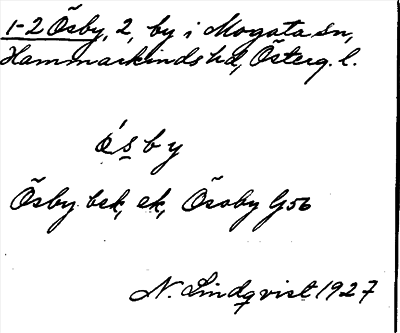 1-2 Ösby, 2, by i Mogata sn,
Hammarkinds hd, Österg. l.
ǿsby
Ösby bsk, ek, Ösby G56
N. Lindqvist 1927